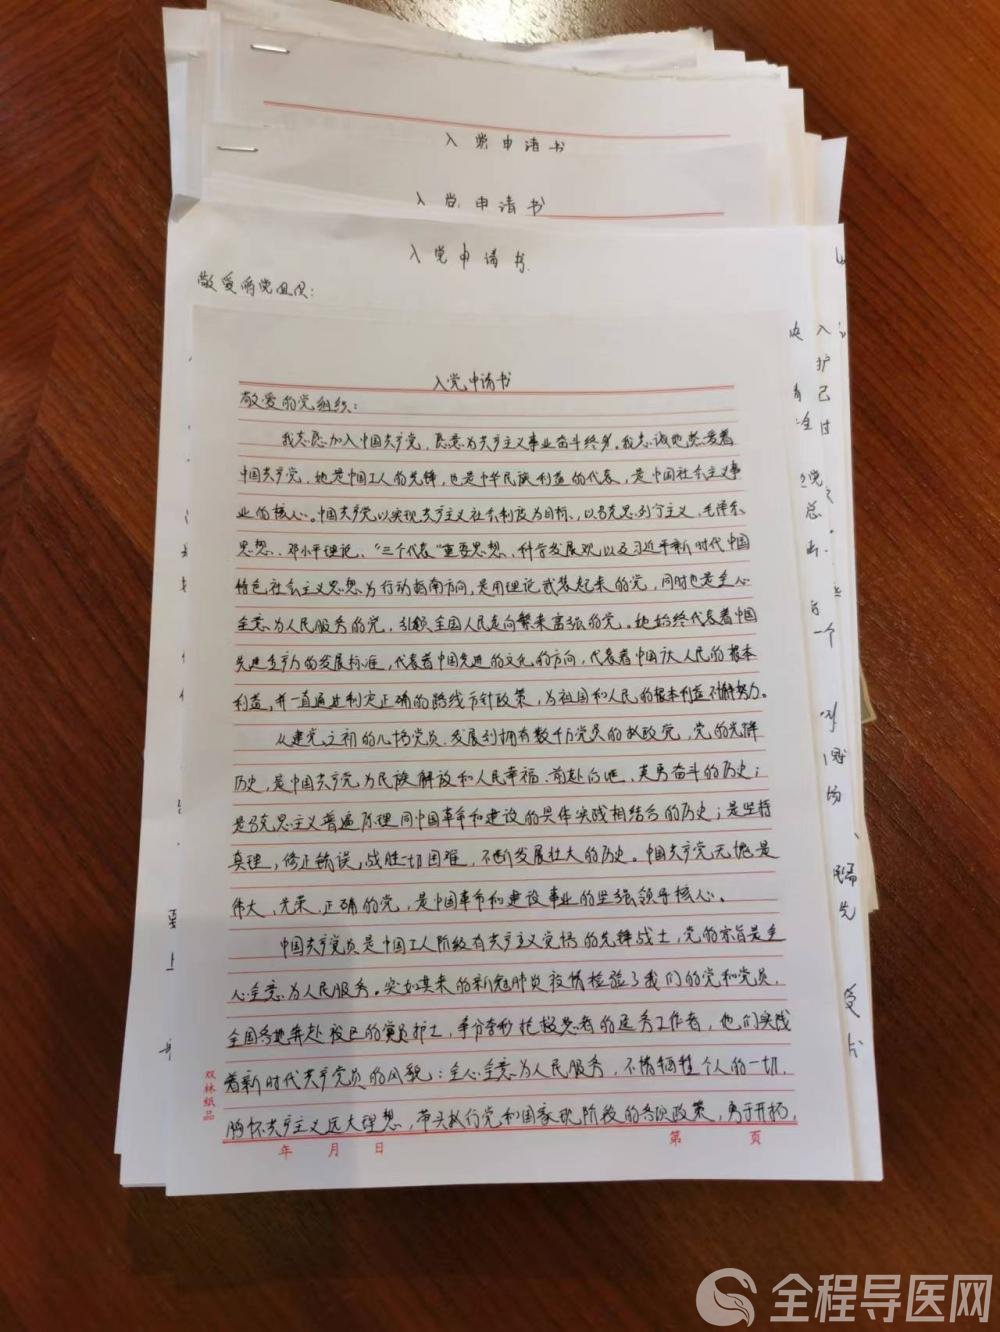 入党申请书
入党申请书
入党申请书
敬爱的党组织：
入党申请书
敬爱的党组织：
我志愿加入中国共产党，愿意为共产主义事业奋斗终身。我忠诚地热爱着
中国共产党，她是中国工人的先锋，也是中华民族利益的代表，是中国社会主义事
业的核心。中国共产党以实现共产主义社会制度为目标，以马克思列宁主义、毛泽东
思想、邓小平理论、“三个代表”重要思想、科学发展观以及习近平新时代中国
特色社会主义思想为行动指南方向，是用理论武装起来的党，同时也是全心
全意为人民服务的党，引领全国人民走向繁荣富强的党。她始终代表着中国
先进生产力的发展标准，代表着中国先进的文化的方向，代表着中国广大人民的根本
利益，并一直通过制定正确的路线方针政策，为祖国和人民的根本利益不懈努力。
从建党之初的几十名党员，发展到拥有数千万党员的执政党，党的光辉
历史，是中国共产党为民族解放和人民幸福，前赴后继，英勇奋斗的历史；
是马克思主义普遍原理同中国革命和建设的具体实践相结合的历史；是坚持
真理，修正错误，战胜一切困难，不断发展壮大的历史。中国共产党无愧是
伟大，光荣，正确的党，是中国革命和建设事业的坚强领导核心。
中国共产党员是中国工人阶级有共产主义觉悟的先锋战士，党的宗旨是全
心全意为人民服务。突如其来的新冠肺炎疫情检验了我们的党和党员，
全国各地奔赴疫区的党员护士，争分夺秒抢救患者的医务工作者，他们实践
着新时代共产党员的风貌：全心全意为人民服务，不惜牺牲个人的一切，
胸怀共产主义远大理想，带头执行党和国家现阶段的各项政策，勇于开拓，
双林纸品
年 月 日 第 页
全程导医网